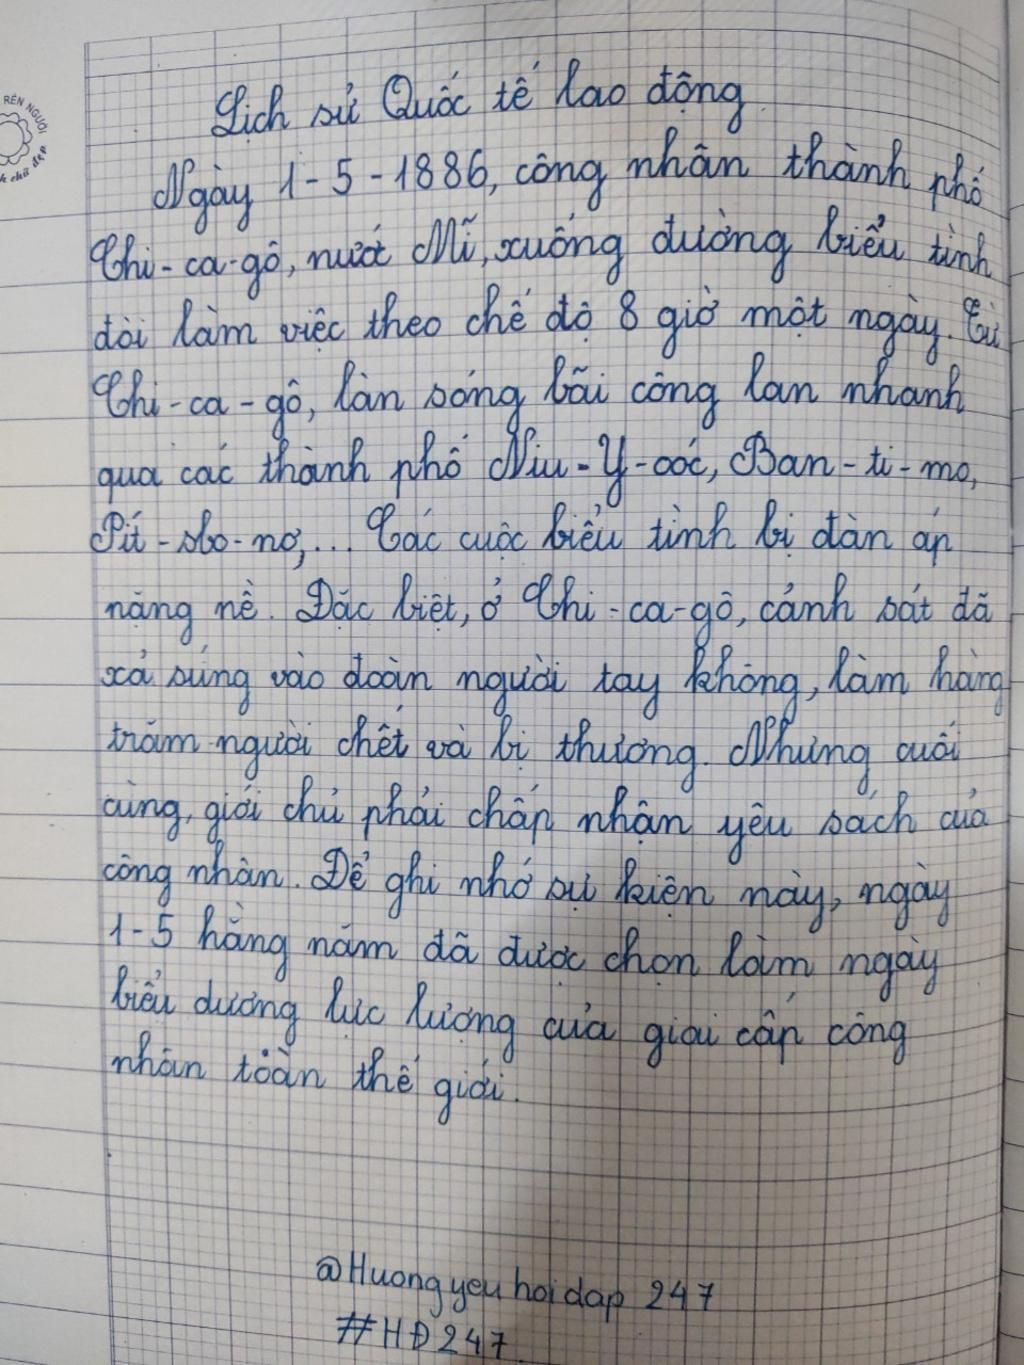 RÈN NGƯỜI
chữ đẹp
Lịch sử Quốc tế lao động
Ngày 1-5-1886, công nhân thành phố
Chi-ca-gô, nước Mĩ, xuống đường biểu tình
đòi làm việc theo chế độ 8 giờ một ngày. Từ
Chi-ca-gô, làn sóng bãi công lan nhanh
qua các thành phố Niu-Y-oóc, Ban-ti-mo,
Pít-sbo-nơ,... Các cuộc biểu tình bị đàn áp
nặng nề. Đặc biệt, ở Chi-ca-gô, cảnh sát đã
xả súng vào đoàn người tay không, làm hàng
trăm người chết và bị thương. Nhưng cuối
cùng, giới chủ phải chấp nhận yêu sách của
công nhân. Để ghi nhớ sự kiện này, ngày
1-5 hằng năm đã được chọn làm ngày
biểu dương lực lượng của giai cấp công
nhân toàn thế giới.
@Huongyeuhoidap 247
#HĐ247